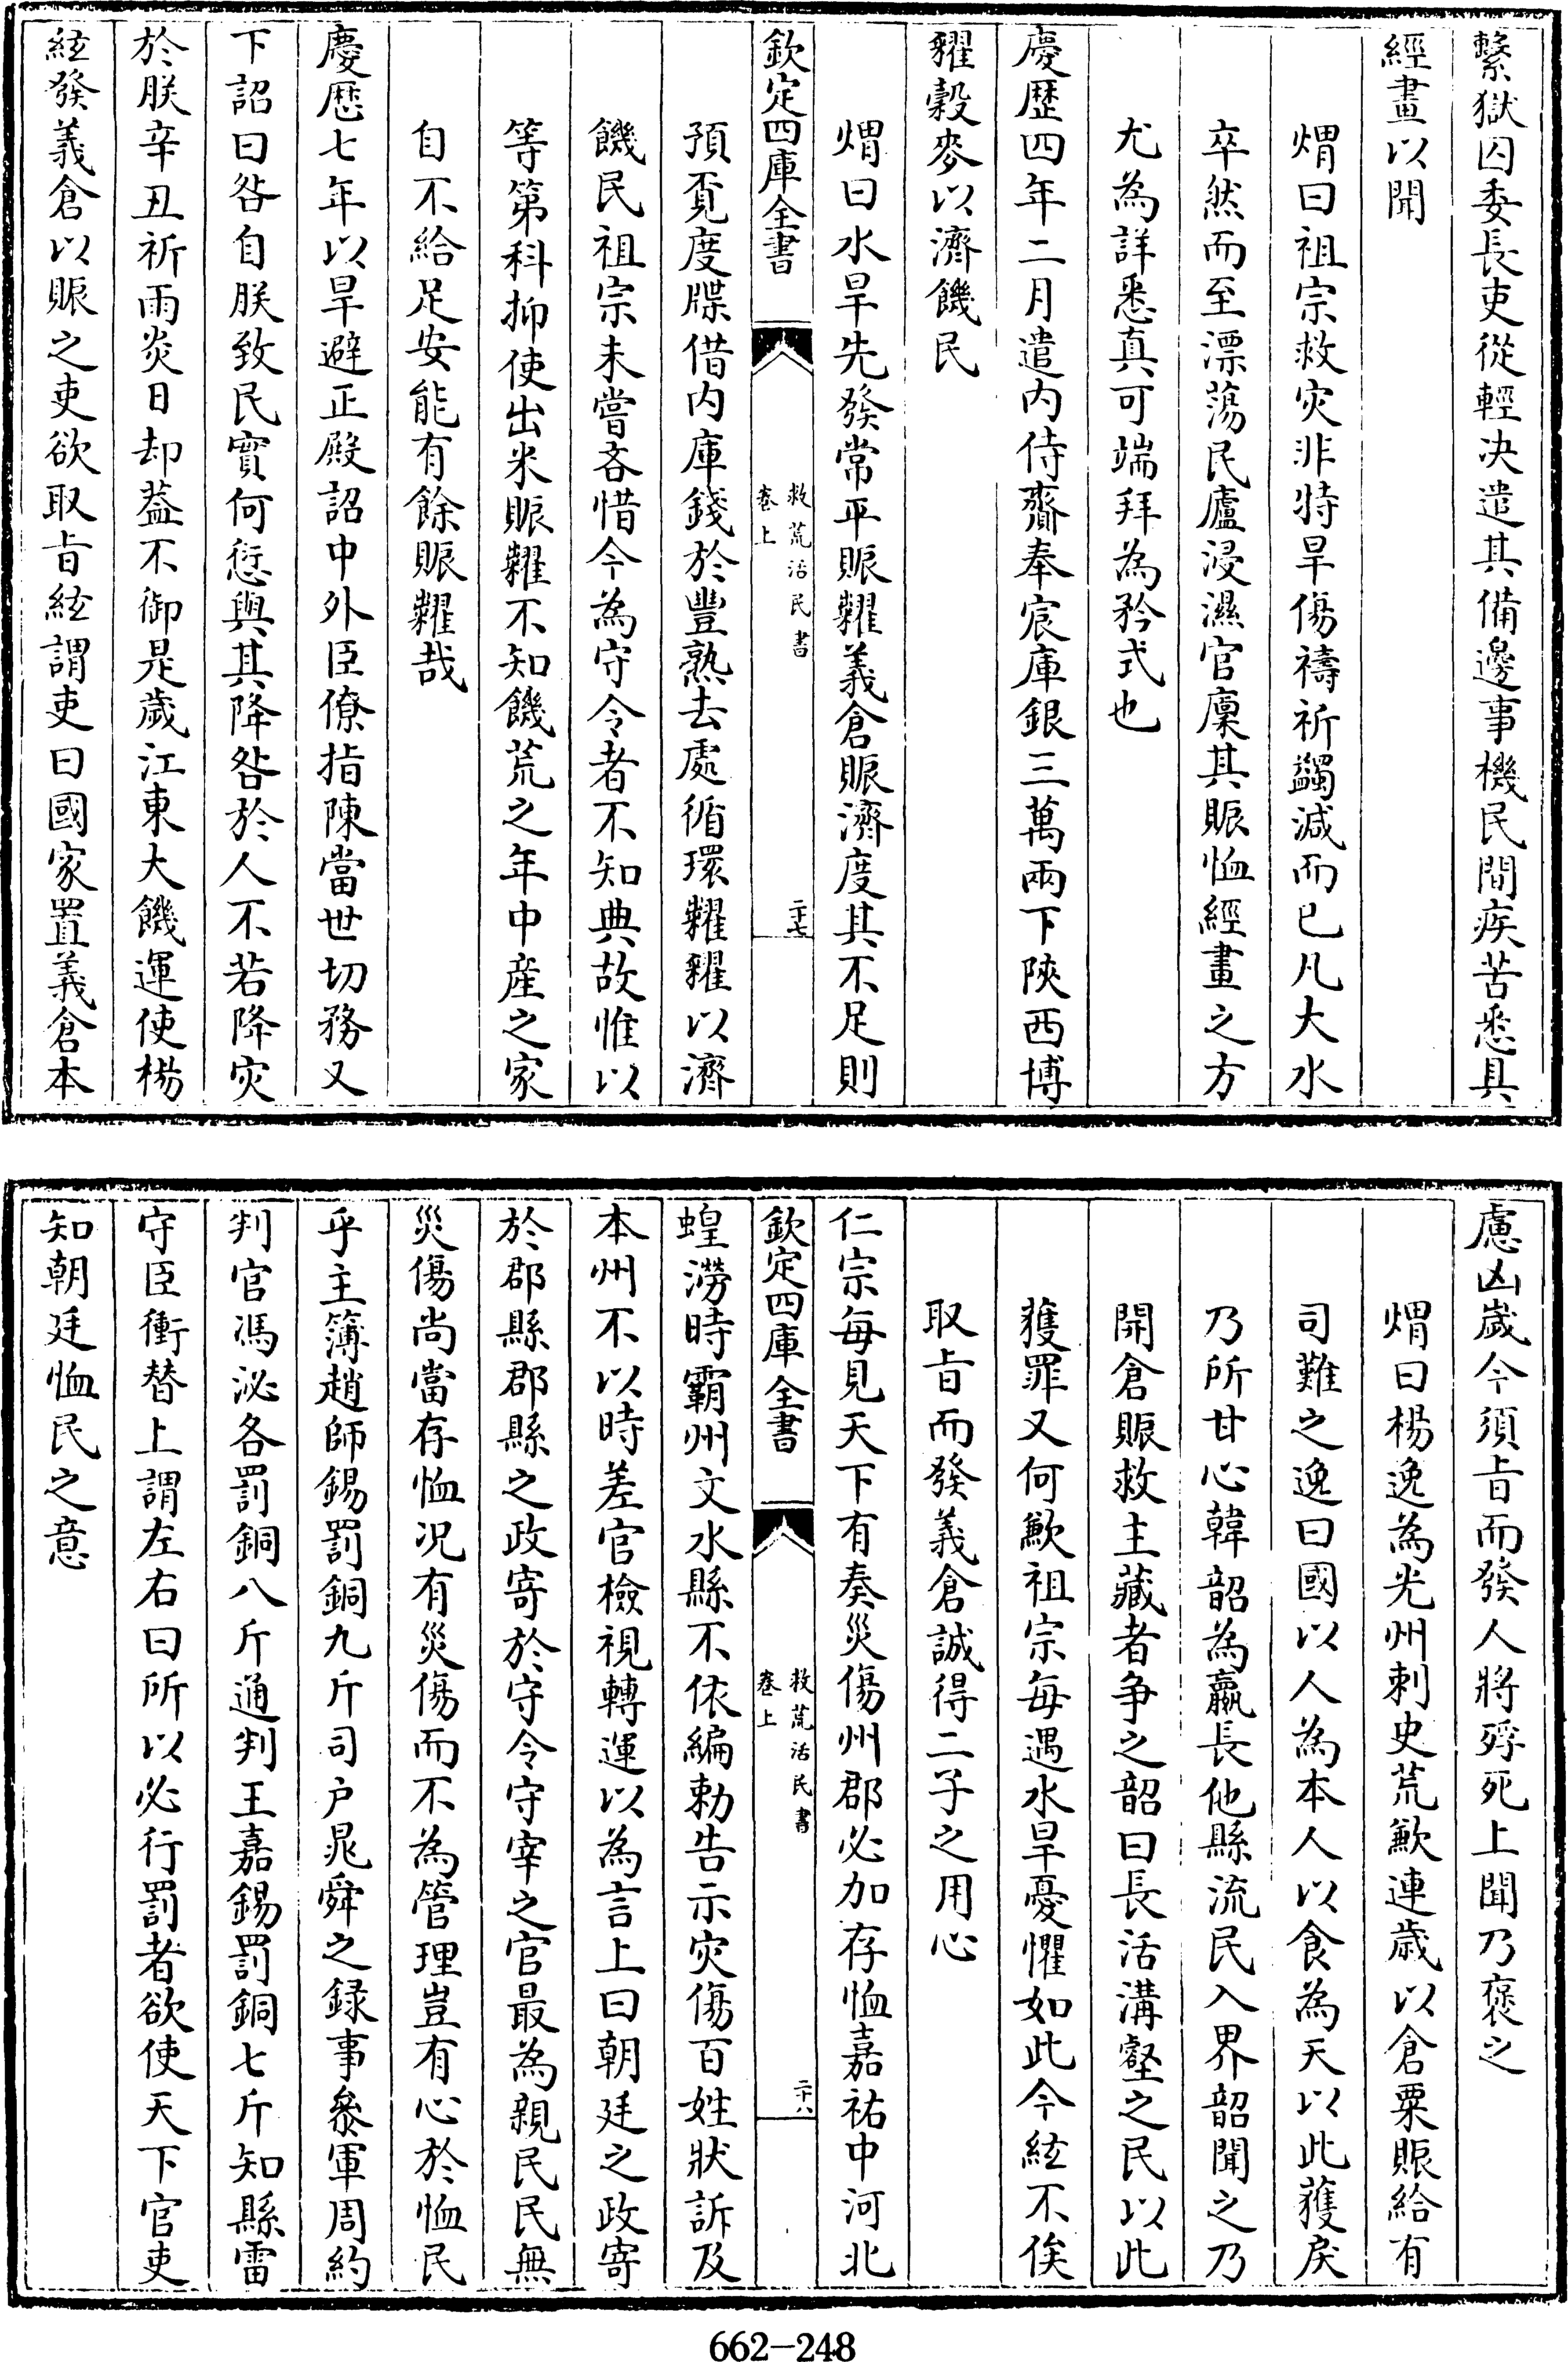 繫獄囚委長吏從輕决遣其備邊事機民間疾苦悉具
經畫以聞
煟曰祖宗救灾非特旱傷禱祈蠲減而已凡大水
卒然而至漂蕩民廬浸濕官廩其賑恤經畫之方
尤為詳悉真可端拜為矜式也
慶歴四年二月遣内侍齎奉宸庫銀三萬兩下陜西博
糴穀麥以濟饑民
煟曰水旱先發常平賑糶義倉賑濟度其不足則
預覔度牒借内庫錢於豐熟去處循環糶糴以濟
饑民祖宗未嘗吝惜今為守令者不知典故惟以
等第科抑使出米賑糶不知饑荒之年中産之家
自不給足安能有餘賑糶哉
慶歴七年以旱避正殿詔中外臣僚指陳當世切務又
下詔曰咎自朕致民實何愆與其降咎於人不若降灾
於朕辛丑祈雨炎日却葢不御是歲江東大饑運使楊
紘發義倉以賑之吏欲取㫖紘謂吏曰國家置義倉本
欽定四庫全書
救荒活民書
卷上
二十七
慮凶歲今須㫖而發人將殍死上聞乃褒之
煟曰楊逸為光州刺史荒歉連歲以倉粟賑給有
司難之逸曰國以人為本人以食為天以此獲戾
乃所甘心韓韶為嬴長他縣流民入界韶聞之乃
開倉賑救主藏者争之韶曰長活溝壑之民以此
獲罪又何歉祖宗每遇水旱憂懼如此今紘不俟
取㫖而發義倉誠得二子之用心
仁宗每見天下有奏災傷州郡必加存恤嘉祐中河北
蝗澇時霸州文水縣不依編勅告示灾傷百姓狀訴及
本州不以時差官檢視轉運以為言上曰朝廷之政寄
於郡縣郡縣之政寄於守令守宰之官最為親民民無
災傷尚當存恤况有災傷而不為管理豈有心於恤民
乎主簿趙師錫罰銅九斤司户晁舜之録事叅軍周約
判官馮泌各罰銅八斤通判王嘉錫罰銅七斤知縣雷
守臣衝替上謂左右曰所以必行罰者欲使天下官吏
知朝廷恤民之意
欽定四庫全書
救荒活民書
卷上
二十八
662-248